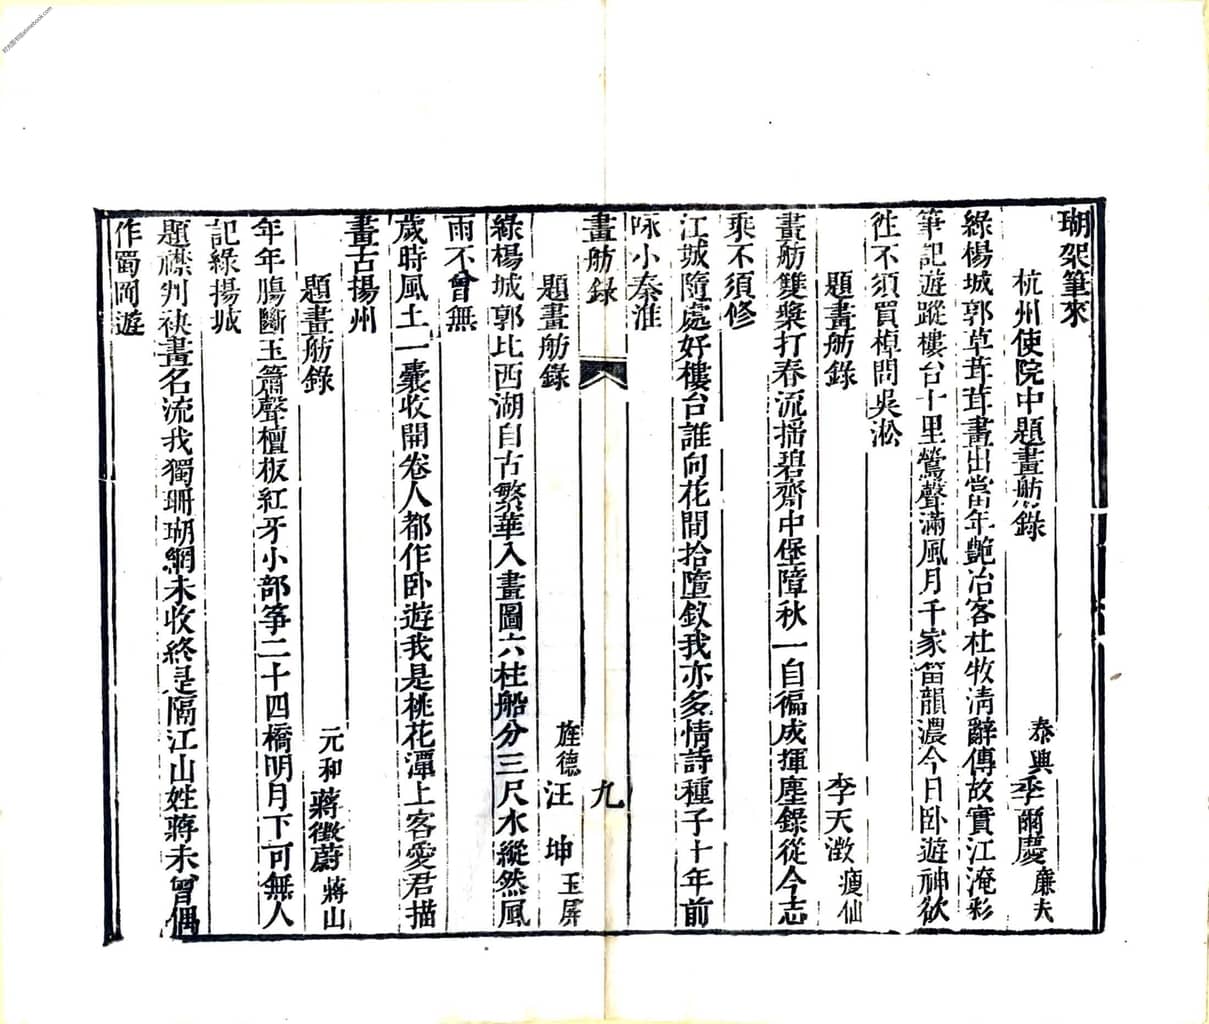 瑚架筆來
杭州使院中題畫舫錄 泰興季爾慶廉夫
綠楊城郭草茸茸畫出當年艷冶客杜牧淸辭傳故實江淹彩
筆記遊蹤樓台十里鶯聲滿風月千家笛韻濃今日臥遊神欲
徃不須買棹問吳淞
題畫舫錄 李天澂瘦仙
畫舫雙槳打春流搖碧齋中堡障秋一自徧成揮塵錄從今志
乘不須修
江城隨處好樓台誰向花間拾墮釵我亦多情詩種子十年前
咏小秦淮
畫舫錄 九
題畫舫錄 旌德汪坤玉屏
綠楊城郭比西湖自古繁華入畫圖六柱船分三尺水縱然風
雨不曾無
歲時風土一囊收開卷人都作臥遊我是桃花潭上客愛君描
畫古揚州
題畫舫錄 元和蔣徵蔚蔣山
年年膓斷玉簫聲檀板紅牙小部箏二十四橋明月下可無人
記綠揚城
題襟判袂畫名流我獨珊瑚網未收終是隔江山姓蔣未曾偶
作蜀岡遊